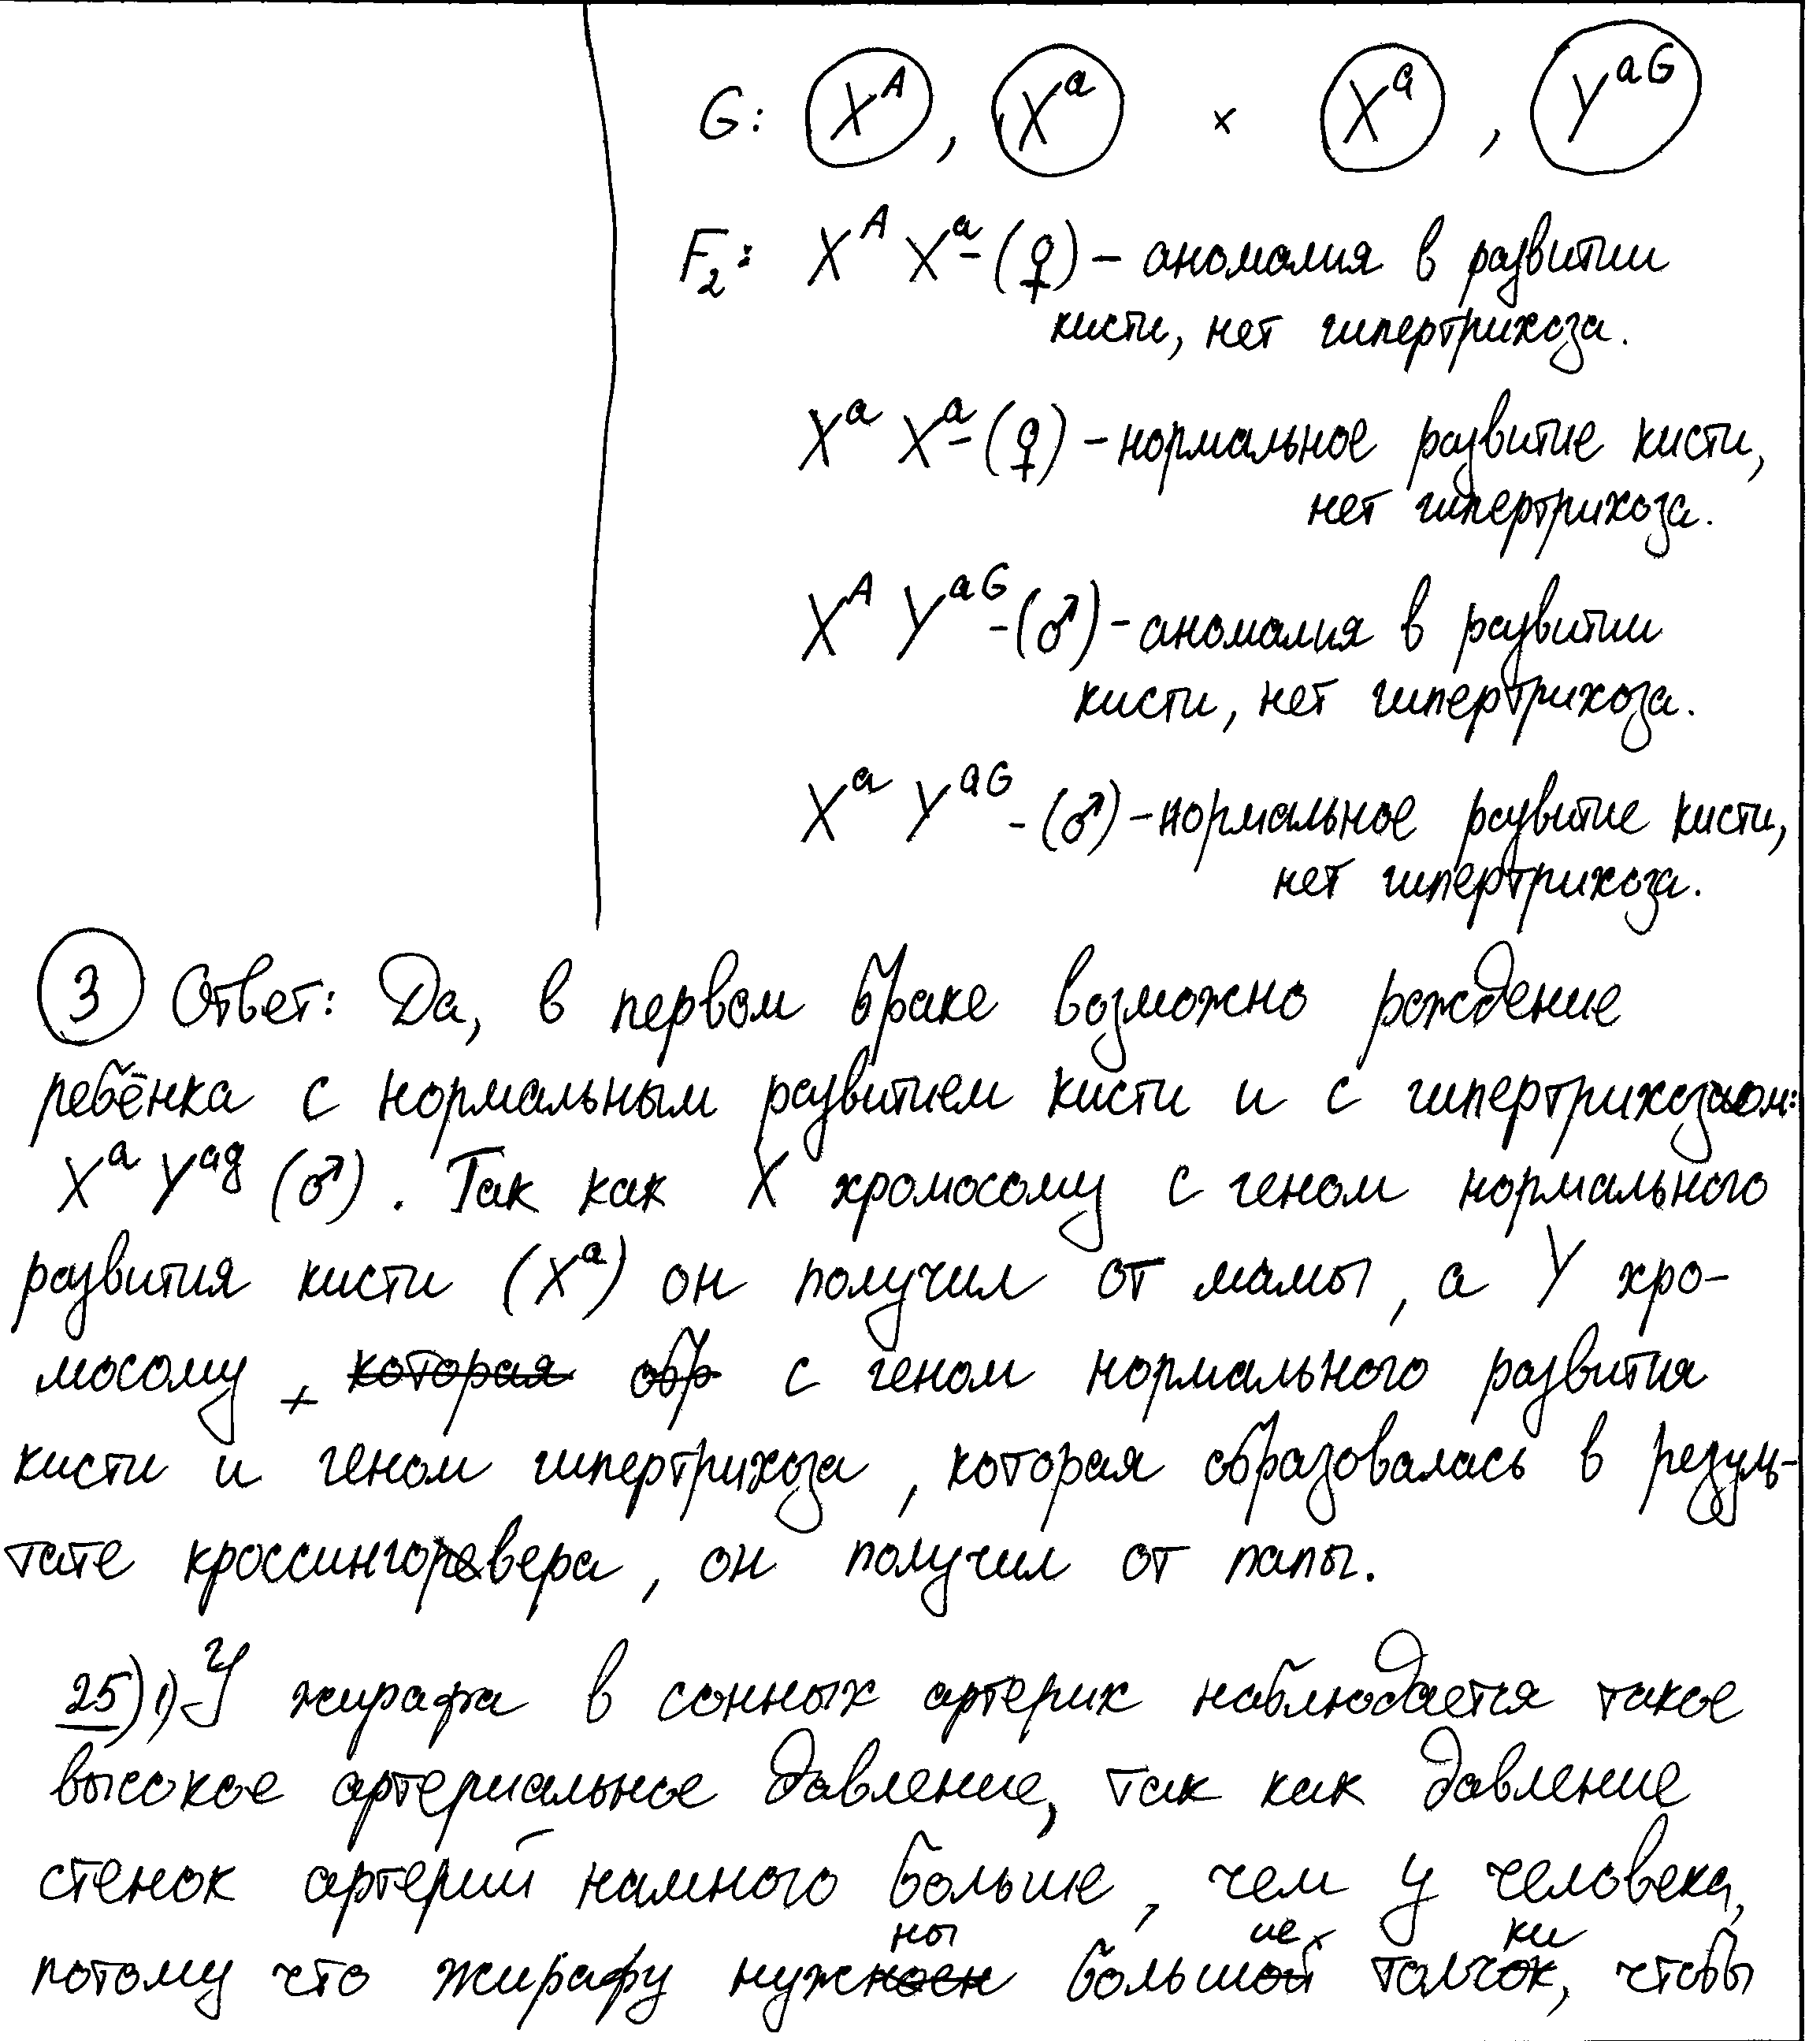 G: X^A, X^a × X^a, Y^aG
F₂: X^A X^a - (♀) – аномалия в развитии
кисти, нет гипертрихоза.
X^a X^a - (♀) – нормальное развитие кисти,
нет гипертрихоза.
X^A Y^aG - (♂) – аномалия в развитии
кисти, нет гипертрихоза.
X^a Y^aG - (♂) – нормальное развитие кисти,
нет гипертрихоза.
③ Ответ: Да, в первом браке возможно рождение
ребёнка с нормальным развитием кисти и с гипертрихозом:
X^a Y^ag (♂). Так как X хромосому с геном нормального
развития кисти (X^a) он получил от мамы, а Y хро-
мосому ~~которая обр~~ с геном нормального развития
кисти и геном гипертрихоза, которая образовалась в резуль-
тате кроссинговера, он получил от папы.
25) 1) У жирафа в сонных артерих наблюдается такое
высокое артериальное давление, так как давление
стенок артерий намного больше, чем у человека,
потому что жирафу нужны большие толчки, чтобы